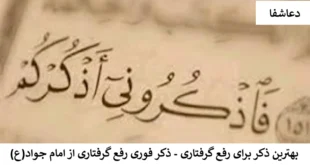 دعاشفا
فَاذْكُرُونِيٓ أَذْكُرْكُمْ
بهترین ذکر برای رفع گرفتاری - ذکر فوری رفع گرفتاری از امام جواد(ع)